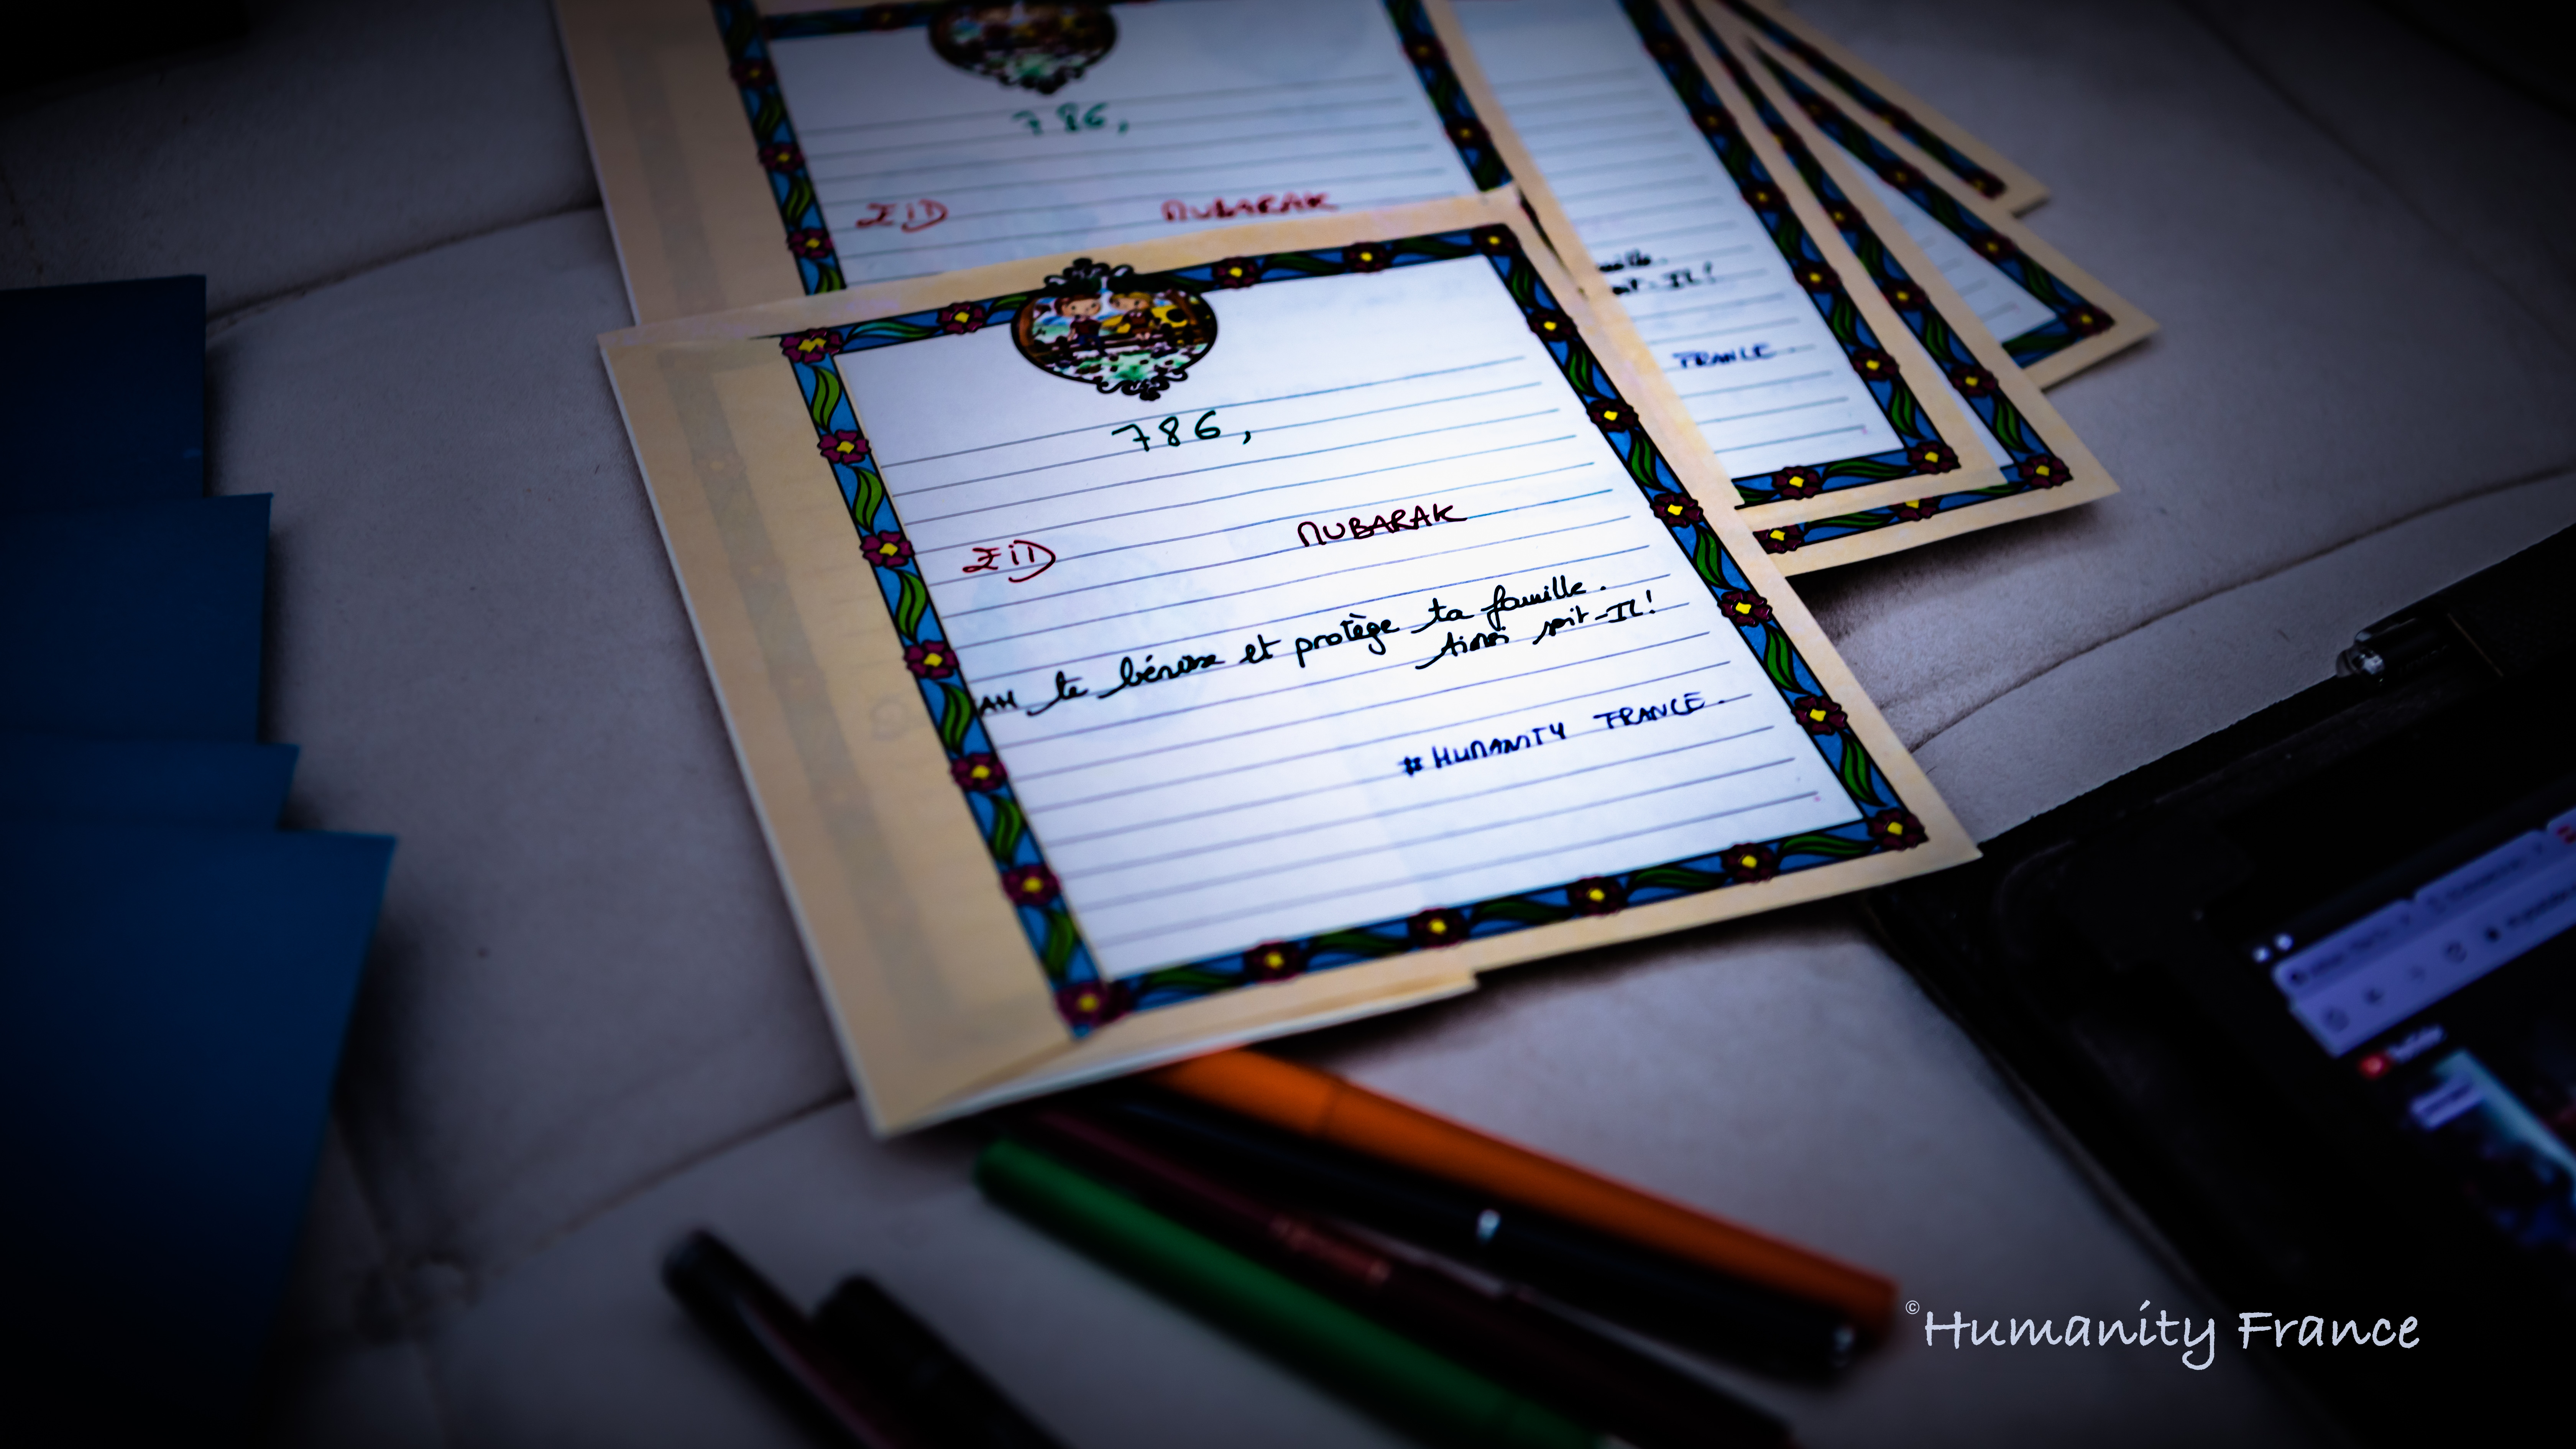 786,
EID MUBARAK
786,
EID MUBARAK
AH te bénisse et protège ta famille.
Ainsi soit-IL!
# HUMANITY FRANCE.
famille.
soit-IL!
FRANCE.
© Humanity France